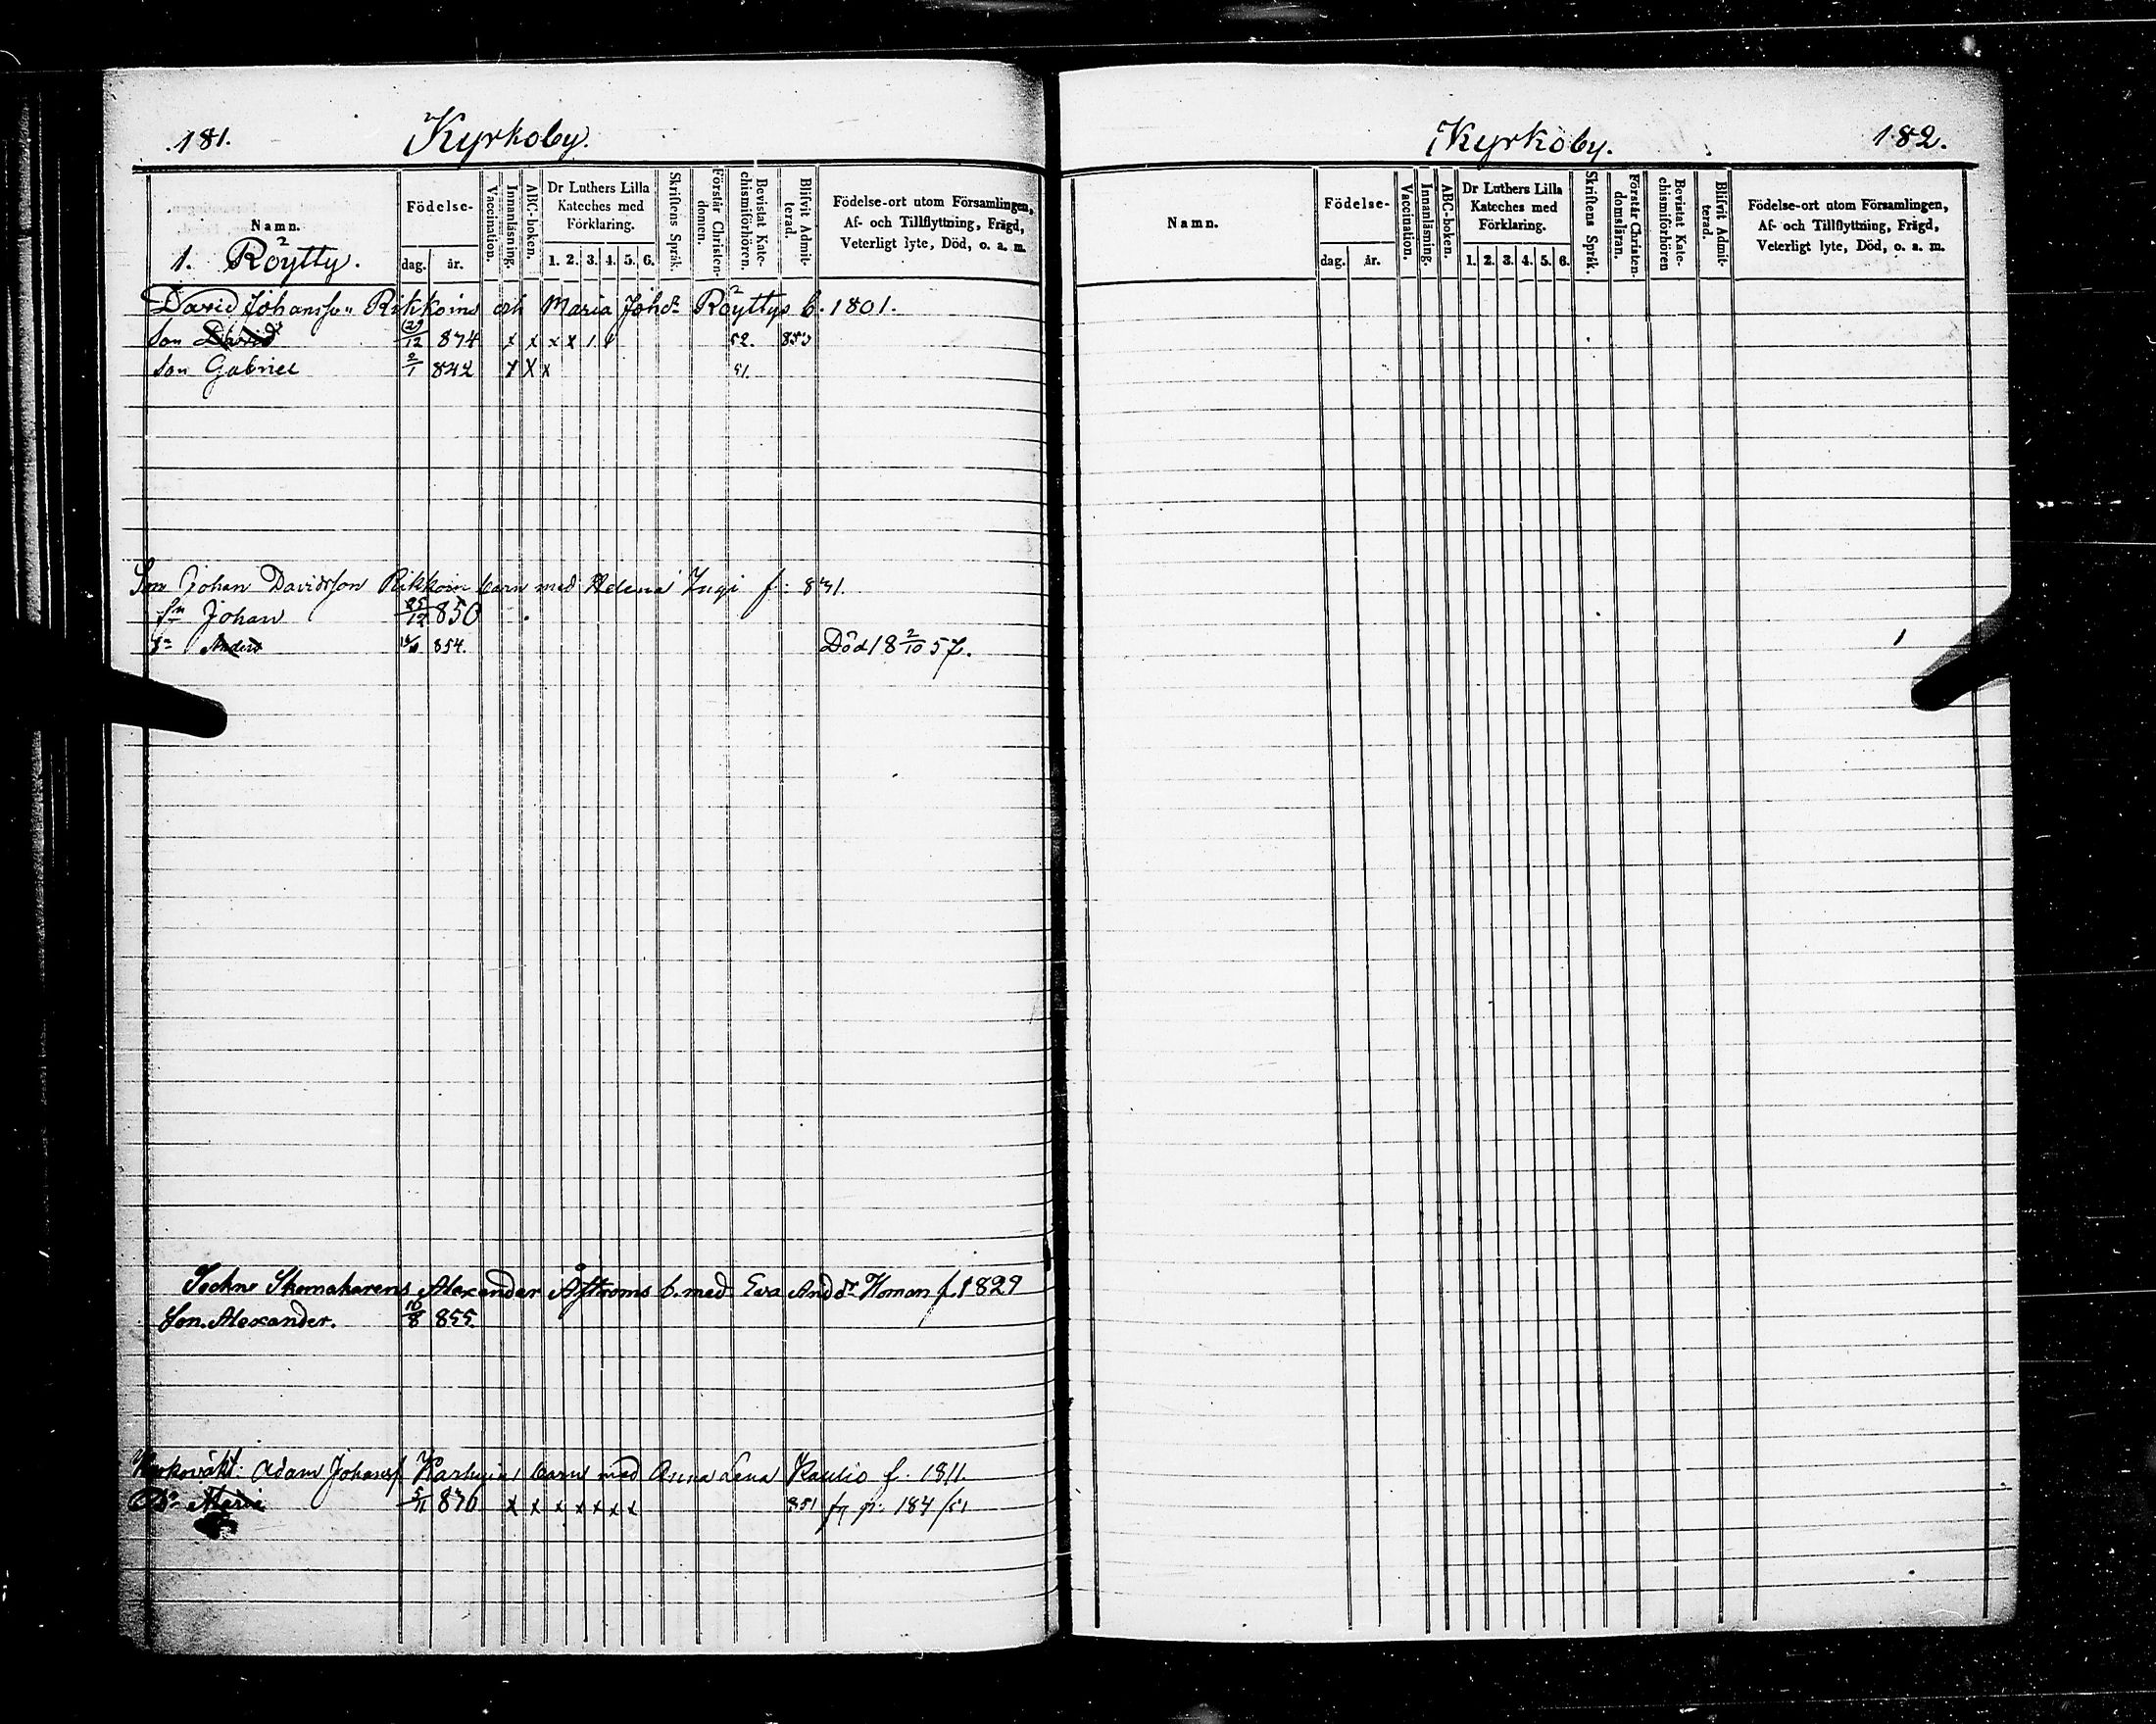 181.
Kyrkoby.
Namn.
Födelse-
dag. år.
Vaccination.
Innanläsning.
ABC-boken.
Dr Luthers Lilla
Kateches med
Förklaring.
1. 2. 3. 4. 5. 6.
Skriftens Språk.
Förstår Christen-
domen.
Bevistat Kate-
chismiförhören.
Blifvit Admit-
terad.
Födelse-ort utom Församlingen,
Af- och Tillflyttning, Frägd,
Veterligt lyte, Död, o. a. m.
1. Röytty.
David Johansson Rikkoins och Maria Johdr Röyttys b. 1801.
Son David 29/12 874 x x x x 52. 853
Son Gabriel 2/1 842 x x x 51.
Son Johan Davidsson Rikkoin barn med Helena f: 831.
Sn Johan 25/12 850
Sn Anders 854. Död 18 2/10 57.
Sockne Skomakarens Alexander Åströms b. med Eva Anddr Homan f. 1829
Son. Alexander. 16/8 855.
Kyrkovakt. Adam Johanss. barn med Anna Lena Kaulio f. 1811
Dr Maria 5/11 836 x x x x x x x 851 p: 184/51
Kyrkoby.
182.
Namn.
Födelse-
dag. år.
Vaccination.
Innanläsning.
ABC-boken.
Dr Luthers Lilla
Kateches med
Förklaring.
1. 2. 3. 4. 5. 6.
Skriftens Språk.
Förstår Christen-
domsläran.
Bevistat Kate-
chismiförhören
Blifvit Admit-
terad.
Födelse-ort utom Församlingen,
Af- och Tillflyttning, Frägd,
Veterligt lyte, Död, o. a. m.